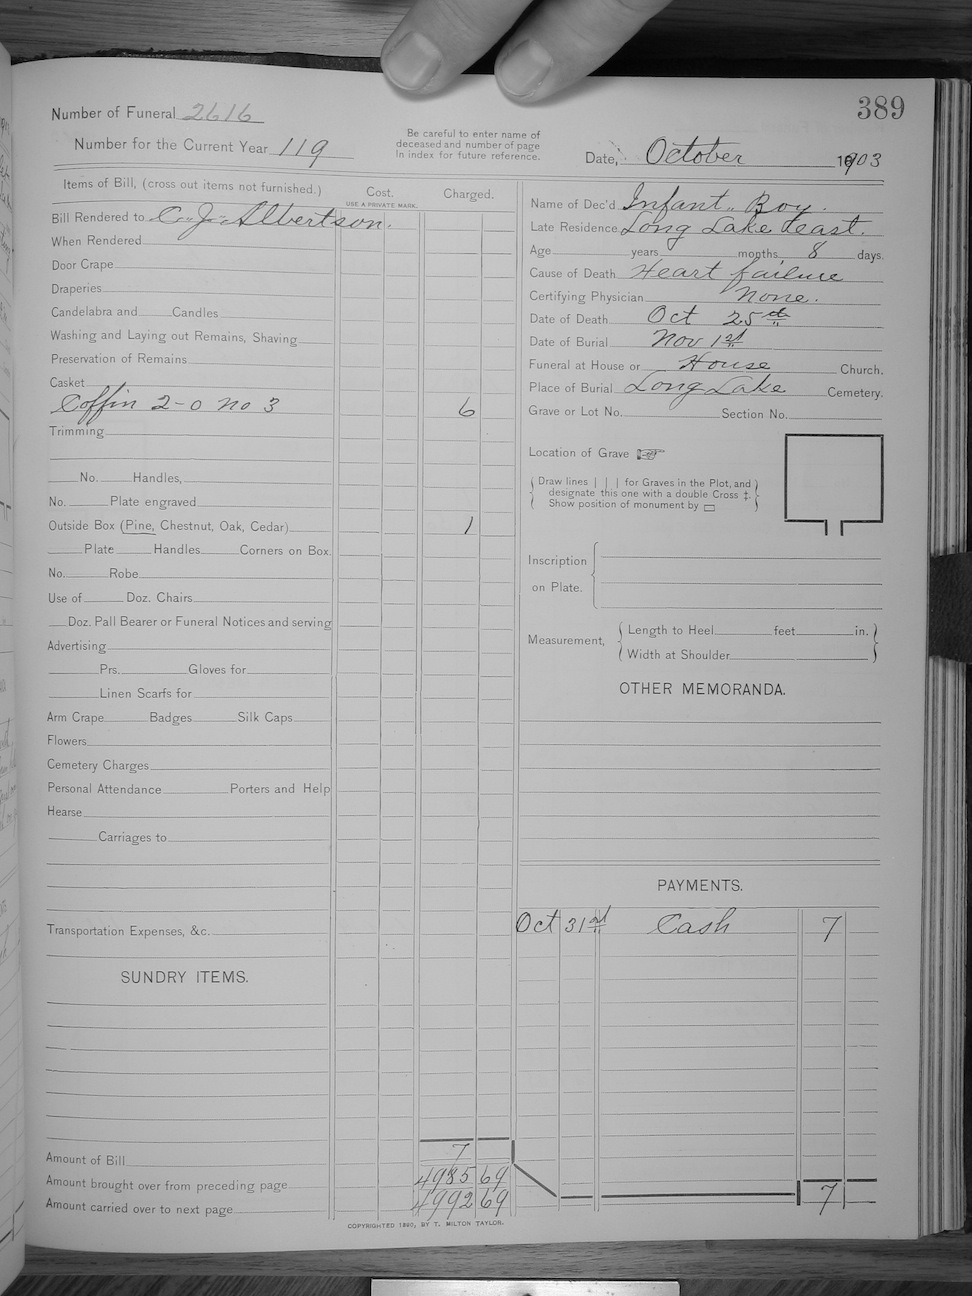 389
Number of Funeral 2616
Number for the Current Year 119
Be careful to enter name of
deceased and number of page
in index for future reference.
Date, October 1903
Items of Bill, (cross out items not furnished.)
Cost.
USE A PRIVATE MARK.
Charged.
Bill Rendered to C. J. Albertson.
When Rendered
Door Crape
Draperies
Candelabra and Candles
Washing and Laying out Remains, Shaving
Preservation of Remains
Casket
Coffin 2-0 no 3 6
Trimming
No. Handles,
No. Plate engraved
Outside Box (Pine, Chestnut, Oak, Cedar) 1
Plate Handles Corners on Box.
No. Robe
Use of Doz. Chairs
Doz. Pall Bearer or Funeral Notices and serving
Advertising
Prs. Gloves for
Linen Scarfs for
Arm Crape Badges Silk Caps
Flowers
Cemetery Charges
Personal Attendance Porters and Help
Hearse
Carriages to
Transportation Expenses, &c.
SUNDRY ITEMS.
Amount of Bill 7
Amount brought over from preceding page 4985 69
Amount carried over to next page 4992 69
Name of Dec'd Infant Boy.
Late Residence Long Lake East.
Age years months 8 days.
Cause of Death Heart failure
Certifying Physician None.
Date of Death Oct 25th
Date of Burial Nov 1st
Funeral at House or House Church.
Place of Burial Long Lake Cemetery.
Grave or Lot No. Section No.
Location of Grave
Draw lines | | | for Graves in the Plot, and
designate this one with a double Cross ‡.
Show position of monument by ▭
Inscription
on Plate.
Measurement,
Length to Heel feet in.
Width at Shoulder
OTHER MEMORANDA.
PAYMENTS.
Oct 31st Cash 7
7
COPYRIGHTED 1890, BY T. MILTON TAYLOR.